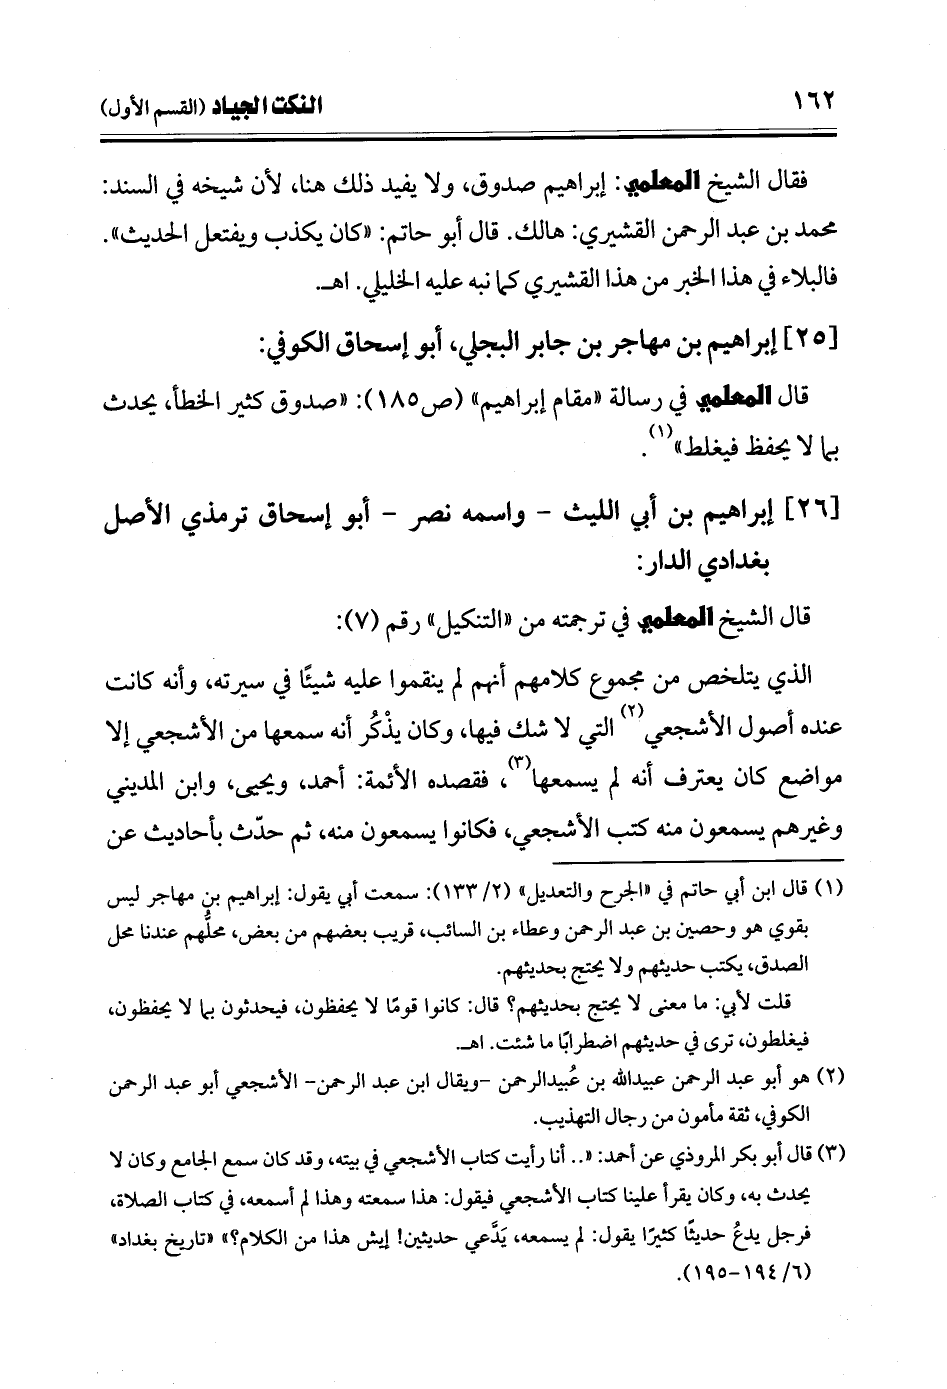 ١٦٢ النكت الجياد (القسم الأول)
فقال الشيخ المعلمي: إبراهيم صدوق، ولا يفيد ذلك هنا، لأن شيخه في السند:
محمد بن عبد الرحمن القشيري: هالك. قال أبو حاتم: «كان يكذب ويفتعل الحديث».
فالبلاء في هذا الخبر من هذا القشيري كما نبه عليه الخليلي. اهـ.
[٢٥] إبراهيم بن مهاجر بن جابر البجلي، أبو إسحاق الكوفي:
قال المعلمي في رسالة «مقام إبراهيم» (ص١٨٥): «صدوق كثير الخطأ، يحدث
بما لا يحفظ فيغلط»(١).
[٢٦] إبراهيم بن أبي الليث - واسمه نصر - أبو إسحاق ترمذي الأصل
بغدادي الدار:
قال الشيخ المعلمي في ترجمته من «التنكيل» رقم (٧):
الذي يتلخص من مجموع كلامهم أنهم لم ينقموا عليه شيئًا في سيرته، وأنه كانت
عنده أصول الأشجعي(٢) التي لا شك فيها، وكان يذْكُر أنه سمعها من الأشجعي إلا
مواضع كان يعترف أنه لم يسمعها(٣)، فقصده الأئمة: أحمد، ويحيى، وابن المديني
وغيرهم يسمعون منه كتب الأشجعي، فكانوا يسمعون منه، ثم حدّث بأحاديث عن
(١) قال ابن أبي حاتم في «الجرح والتعديل» (٢/ ١٣٣): سمعت أبي يقول: إبراهيم بن مهاجر ليس
بقوي هو وحصين بن عبد الرحمن وعطاء بن السائب، قريب بعضهم من بعض، محلُّهم عندنا محل
الصدق، يكتب حديثهم ولا يحتج بحديثهم.
قلت لأبي: ما معنى لا يحتج بحديثهم؟ قال: كانوا قومًا لا يحفظون، فيحدثون بما لا يحفظون،
فيغلطون، ترى في حديثهم اضطرابًا ما شئت. اهـ.
(٢) هو أبو عبد الرحمن عبيدالله بن عُبيدالرحمن -ويقال ابن عبد الرحمن- الأشجعي أبو عبد الرحمن
الكوفي، ثقة مأمون من رجال التهذيب.
(٣) قال أبو بكر المروذي عن أحمد: «.. أنا رأيت كتاب الأشجعي في بيته، وقد كان سمع الجامع وكان لا
يحدث به، وكان يقرأ علينا كتاب الأشجعي فيقول: هذا سمعته وهذا لم أسمعه، في كتاب الصلاة،
فرجل يدعُ حديثًا كثيرًا يقول: لم يسمعه، يَدَّعي حديثين! إيش هذا من الكلام؟» «تاريخ بغداد»
(٦/ ١٩٤-١٩٥).